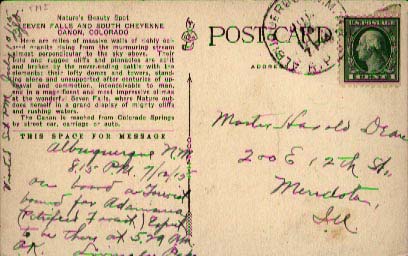 Nature's Beauty Spot
SEVEN FALLS AND SOUTH CHEYENNE
CANON, COLORADO
Here are miles of massive walls of richly colored granite rising from the murmuring stream
almost perpendicular to the sky above. Their
bold and rugged cliffs and pinnacles are split
and broken by the everlasting battle with the
elements; their lofty domes and towers, standing alone and unsupported after centuries of upheaval and commotion, inconceivable to man,
end in a magnificent and most impressive climax
at the wonderful Seven Falls, where Nature outdoes herself in a grand display of mighty cliffs
and rushing waters.
The Canon is reached from Colorado Springs
by street car, carriage or auto.
THIS SPACE FOR MESSAGE
Albuquerque N.M.
8.15 P.M. 7/12/15
on board a Tourist
bound for Adamana
(Petrified Forest) Expect
to be there at 5.29 AM
OK.
POST CARD
ADDRESS
R.P.O.
1 CENT 1
Master Harold Deane
200 E 12th St.
Mendota,
Ill